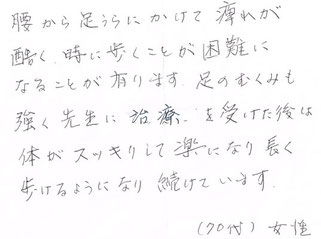 腰から足うらにかけて痺れが
酷く、時に歩くことが困難に
なることが有ります。足のむくみも
強く先生に治療を受けた後は
体がスッキリして楽になり長く
歩けるようになり続けています。
(70代) 女性